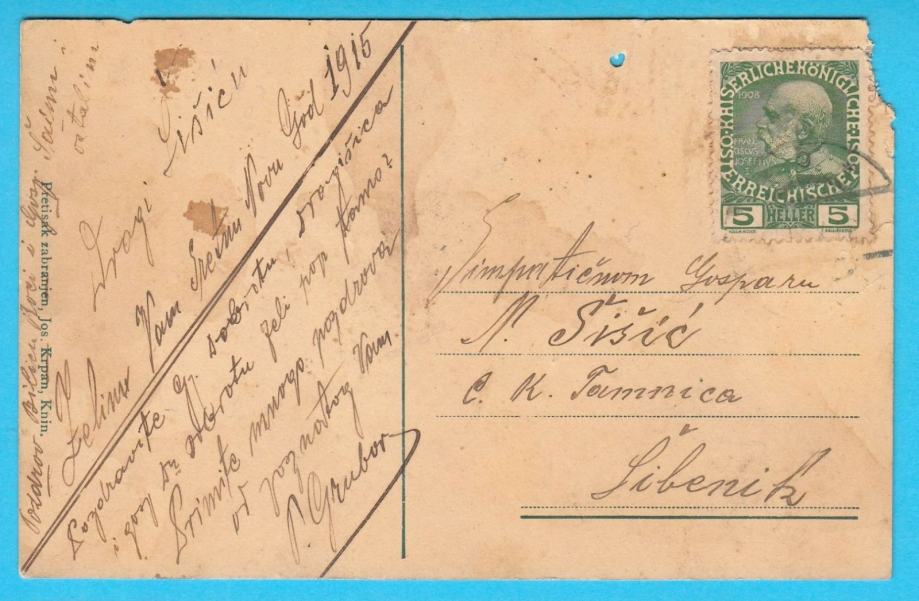 Dragi Šišiću
Želimo Vam Sretnu Novu God 1915
Pozdravite G. dobrotu,
i gosp Dr dobrotu jeli pop tamo?
Primite mnogo pozdrova
od poznatog Vam
P. Grubor
Pozdrov
i
ostalim
Přetisak zabranjen, Jos. Krpan, Knin.
KAISERLICHE KÖNIGLICHE ÖSTERREICHISCHE POST
1908
5 HELLER 5
Simpatičnom Gosparu
N. Šišić
C. K. Tamnica
Šibenik